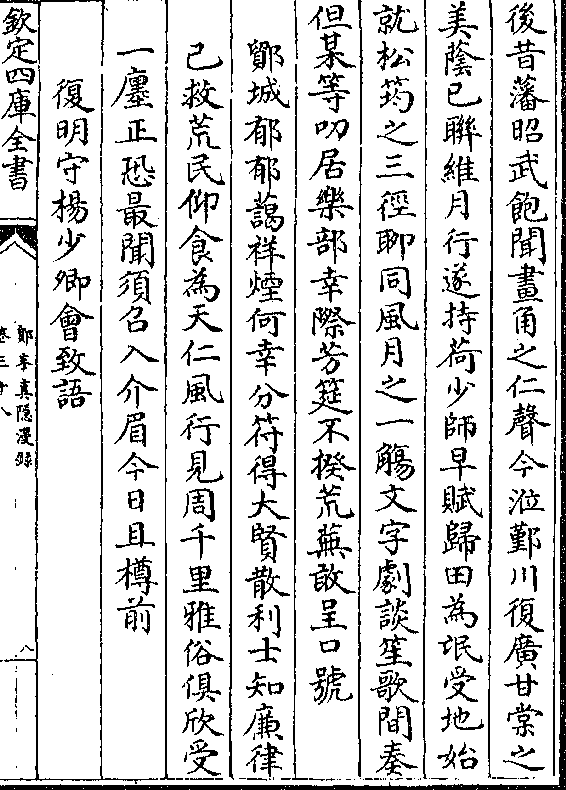 後昔藩昭武飽聞畫角之仁聲今涖鄞川復廣甘棠之
美蔭已聯維月行遂持荷少師早賦歸田為氓受地始
就松筠之三徑聊同風月之一觴文字劇談笙歌間奏
但某等叨居樂部幸際芳筵不揆荒蕪敢呈口號
鄮城郁郁藹祥煙何幸分符得大賢散利士知廉律
已救荒民仰食為天仁風行見周千里雅俗俱欣受
一廛正恐最聞須召入介眉今日且樽前
復明守楊少卿會致語
欽定四庫全書
鄮峯真隱漫錄
卷三十八
八